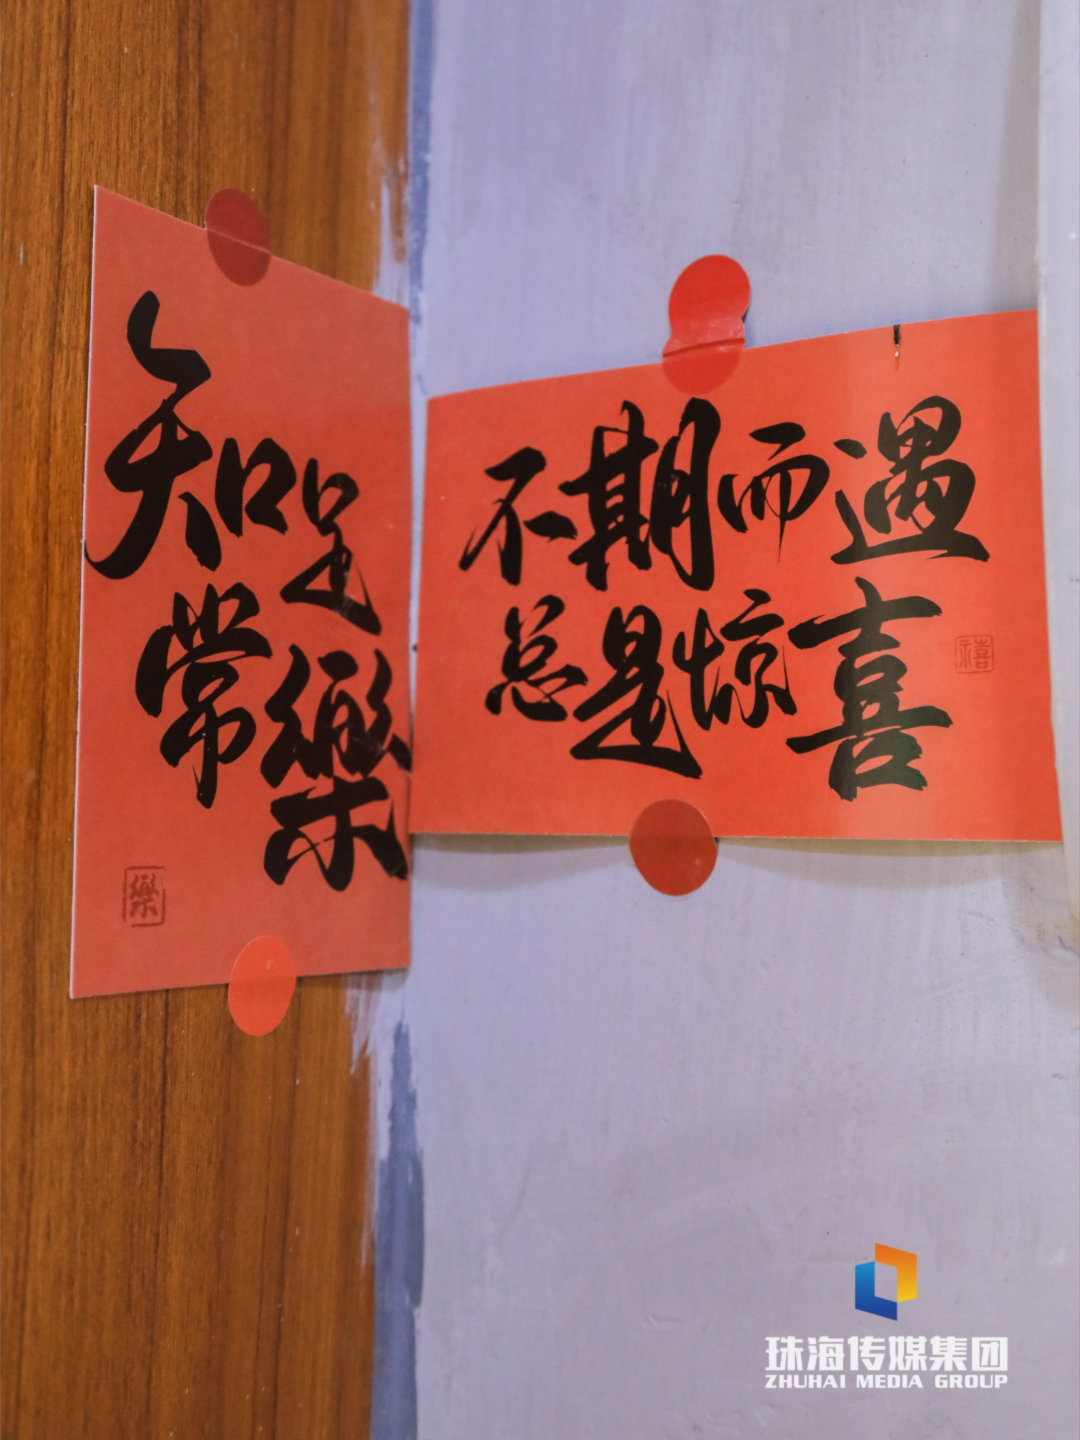 知足
常樂
樂
不期而遇
总是惊喜
禧
珠海传媒集团
ZHUHAI MEDIA GROUP